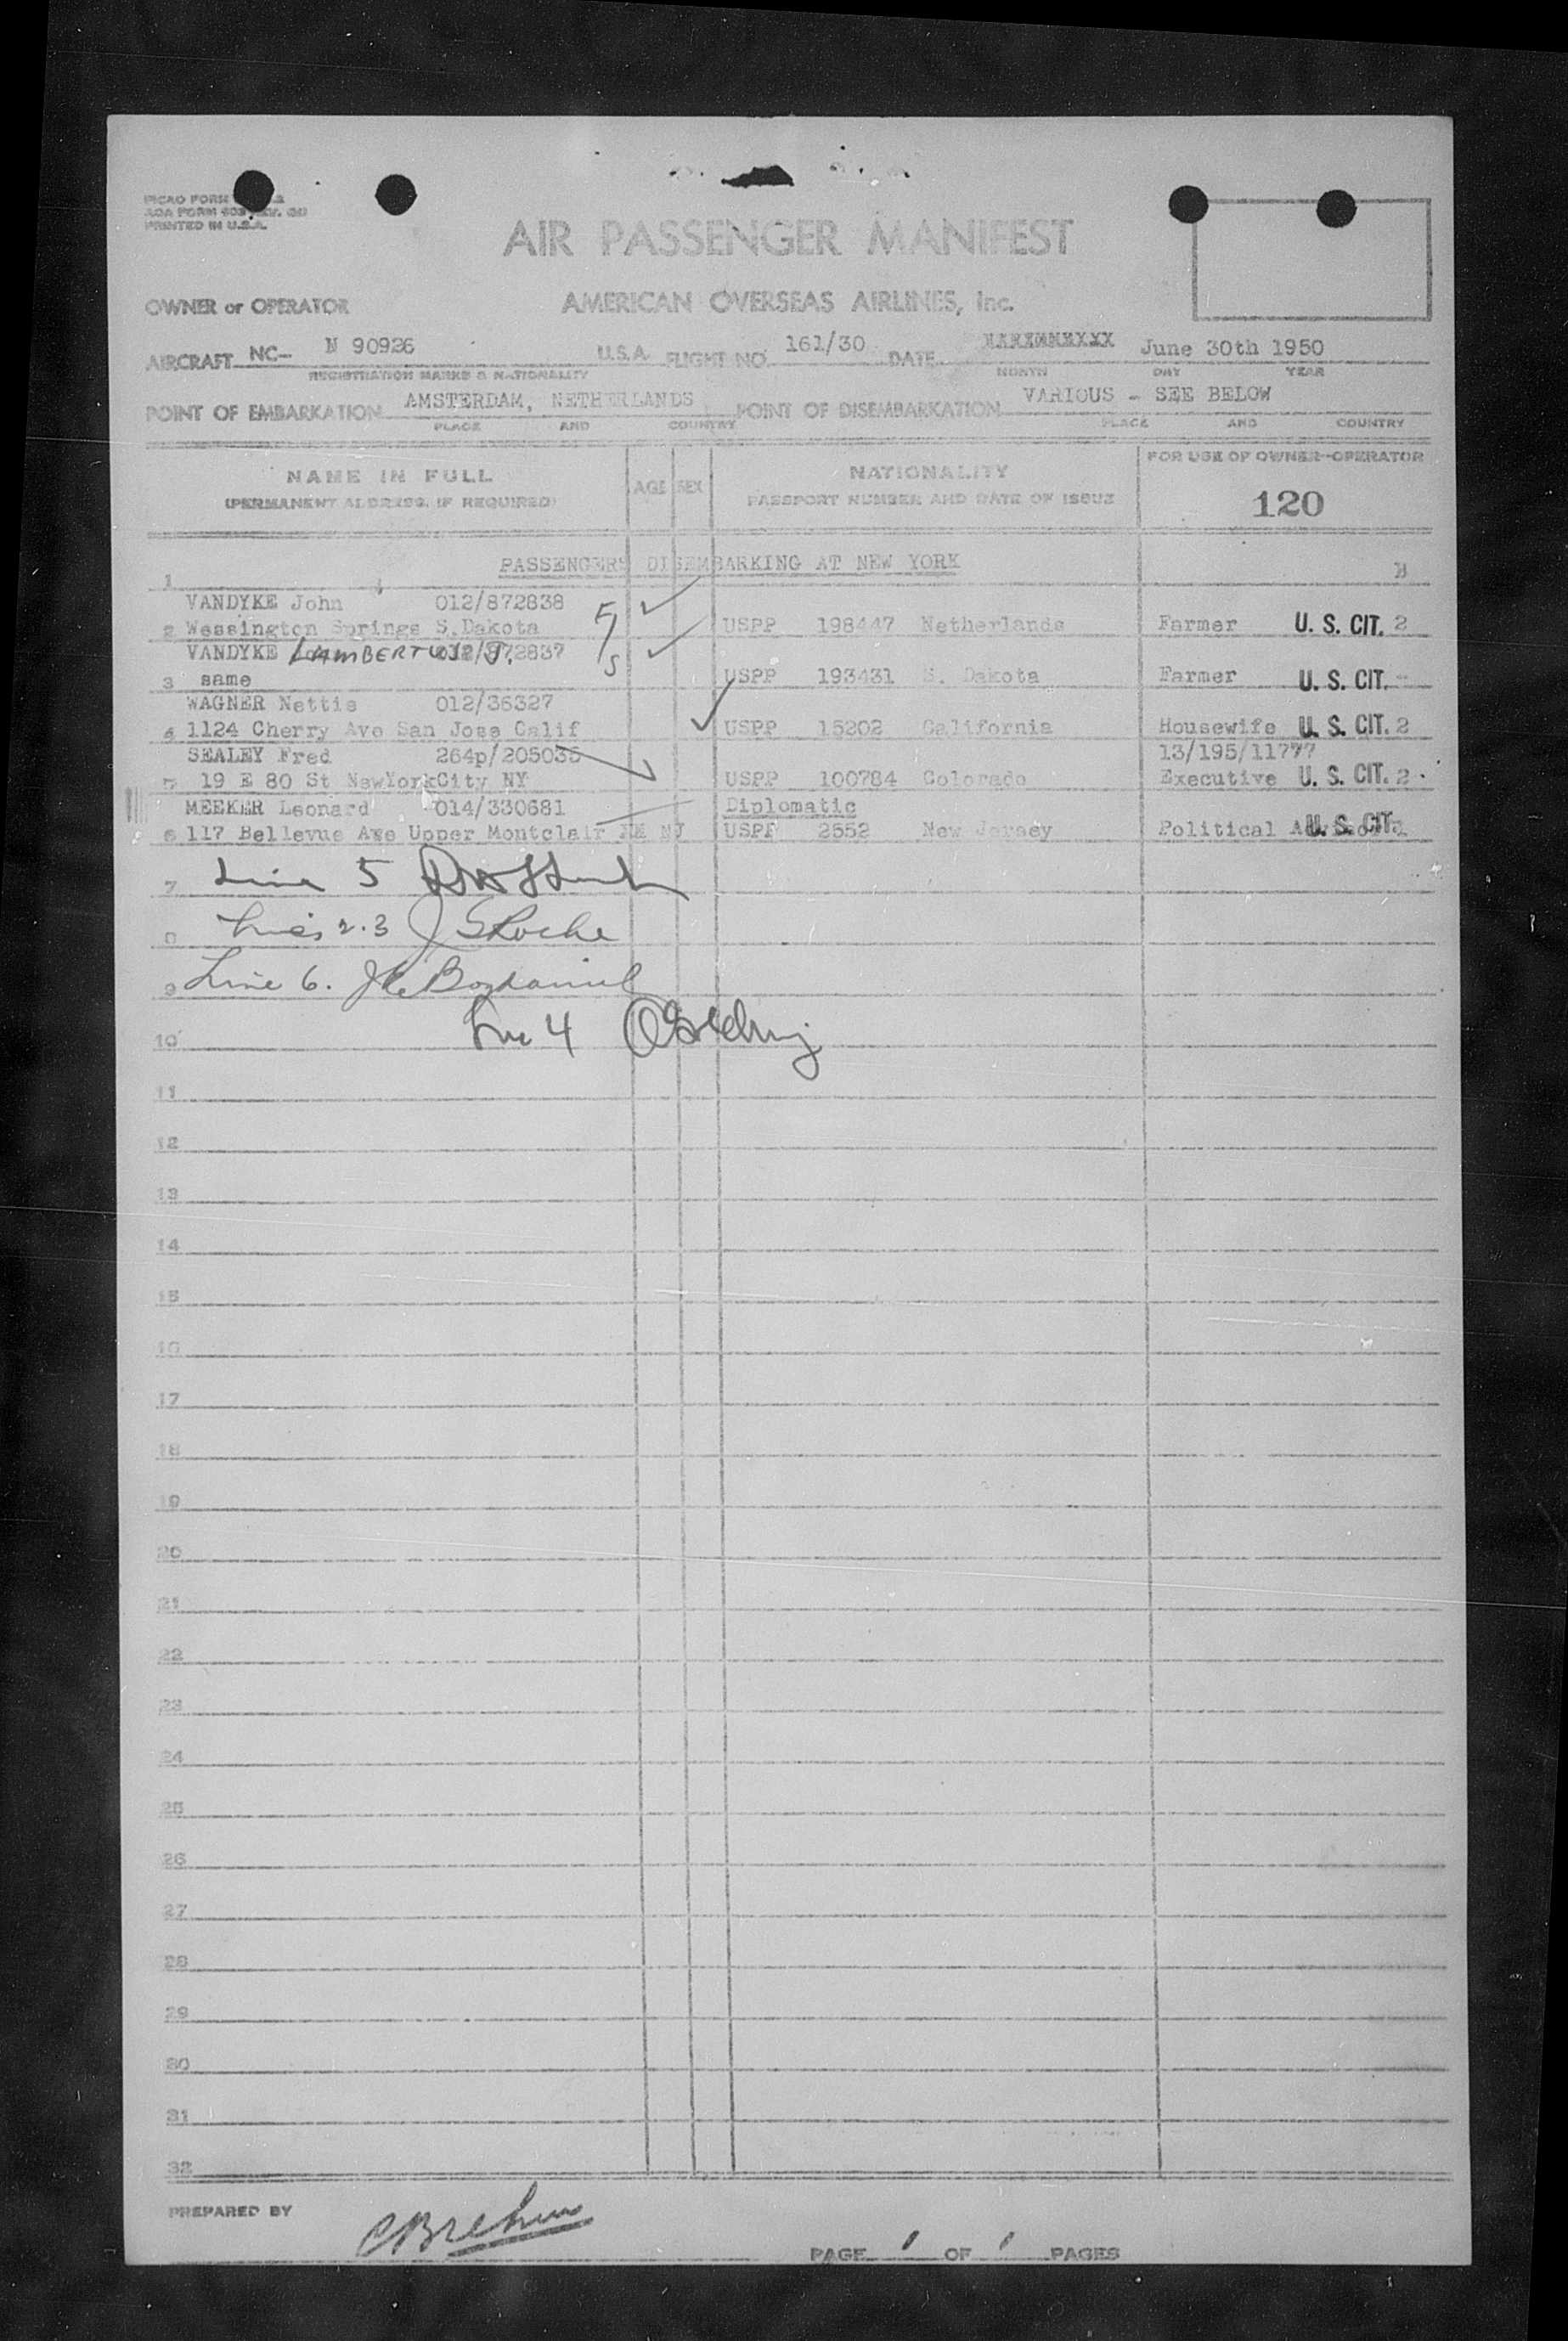 PICAO FORM
AOA FORM 603 REV.
PRINTED IN U.S.A.
AIR PASSENGER MANIFEST
OWNER or OPERATOR AMERICAN OVERSEAS AIRLINES, Inc.
AIRCRAFT NC- N 90926 U.S.A. FLIGHT NO. 161/30 DATE June 30th 1950
REGISTRATION MARKS & NATIONALITY MONTH DAY YEAR
POINT OF EMBARKATION AMSTERDAM, NETHERLANDS POINT OF DISEMBARKATION VARIOUS - SEE BELOW
PLACE AND COUNTRY PLACE AND COUNTRY
NAME IN FULL AGE SEX NATIONALITY FOR USE OF OWNER-OPERATOR
(PERMANENT ADDRESS, IF REQUIRED) PASSPORT NUMBER AND DATE OF ISSUE 120
PASSENGERS DISEMBARKING AT NEW YORK
1 B
VANDYKE John 012/872838
2 Wessington Springs S.Dakota USPP 198447 Netherlands Farmer U. S. CIT. 2
VANDYKE LAMBERTUS J. 012/872837
3 same USPP 193431 S. Dakota Farmer U. S. CIT. -
WAGNER Nettie 012/36327
4 1124 Cherry Ave San Jose Calif USPP 15202 California Housewife U. S. CIT. 2
SEALEY Fred 264p/205035 13/195/11777
5 19 E 80 St NewYorkCity NY USPP 100784 Colorado Executive U. S. CIT. 2
MEEKER Leonard 014/330681 Diplomatic
6 117 Bellevue Ave Upper Montclair NJ USPP 2552 New Jersey Political Advisor U. S. CIT.
7 Line 5
8 Lines 2.3 J S Roche
9 Line 6.
10 Line 4
11
12
13
14
15
16
17
18
19
20
21
22
23
24
25
26
27
28
29
30
31
32
PREPARED BY
PAGE 1 OF 1 PAGES